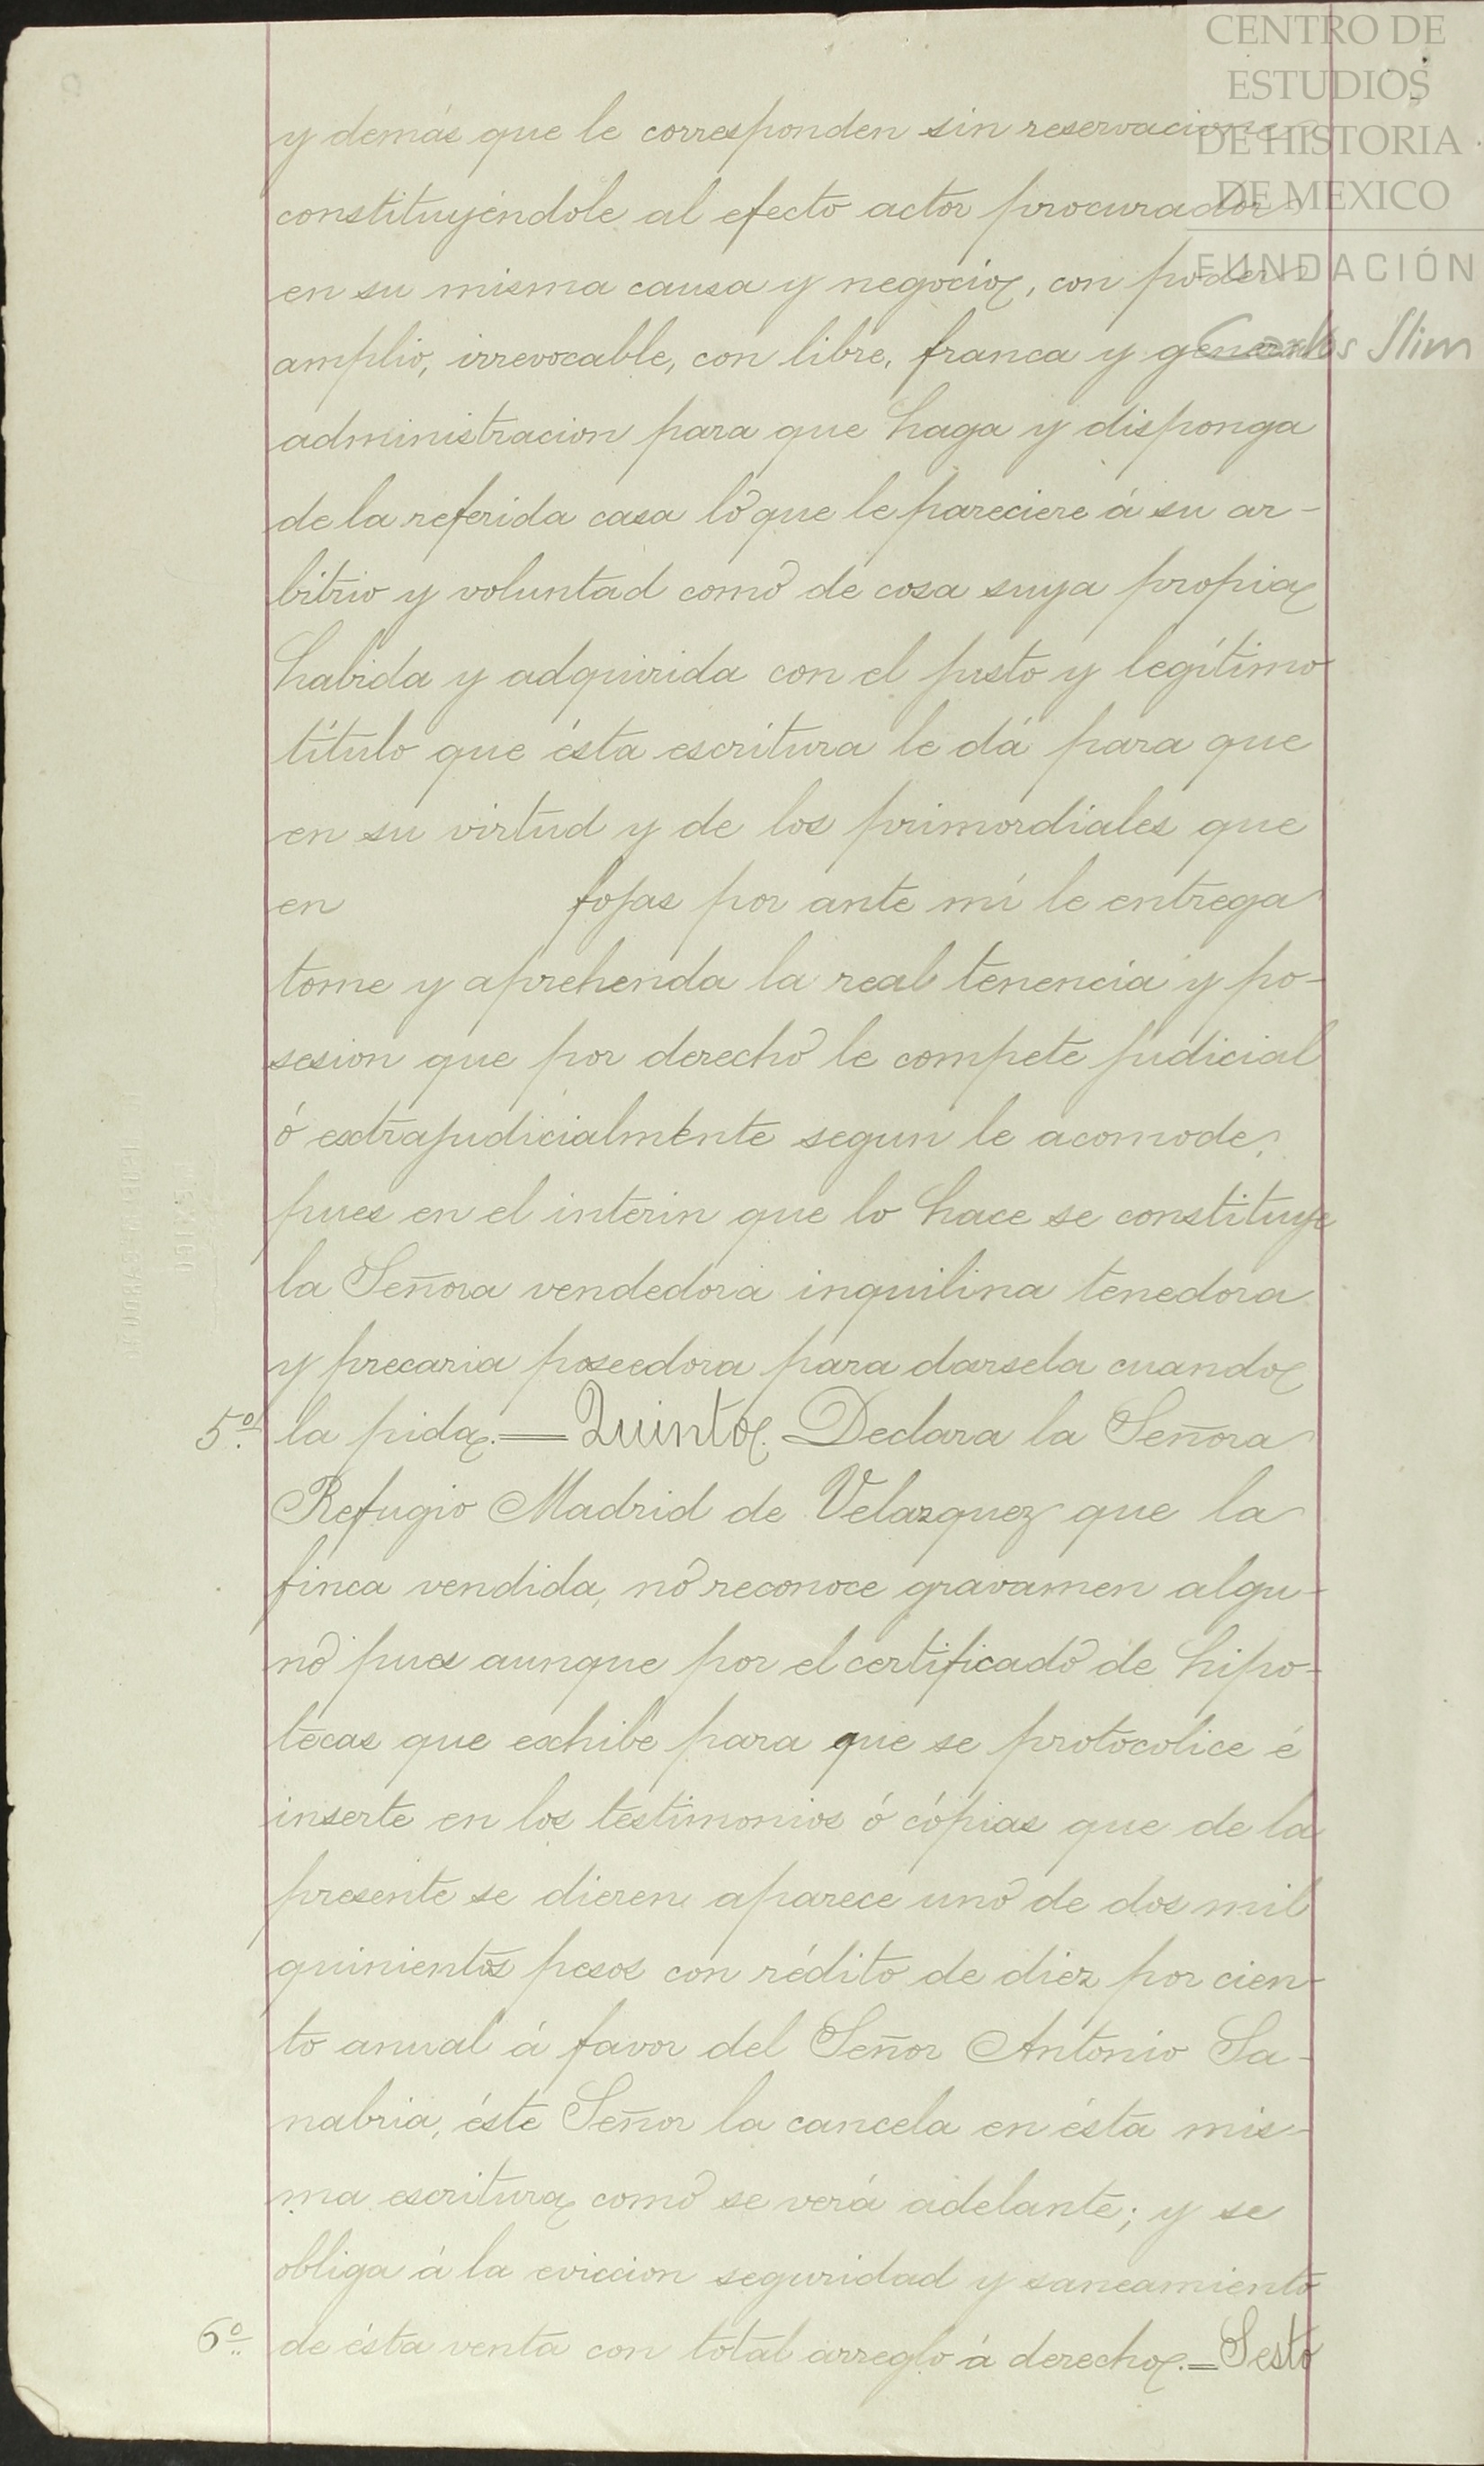 CENTRO DE
ESTUDIOS
DE HISTORIA
DE MEXICO
FUNDACIÓN
Carlos Slim
y demás que le corresponden sin reservacion
constituyéndole al efecto actor procurador
en su misma causa y negocio, con poder
amplio, irrevocable, con libre, franca y general
administracion para que haga y disponga
de la referida casa lo que le pareciere á su ar-
bitrio y voluntad como de cosa suya propia
habida y adquirida con el justo y legítimo
título que ésta escritura le dá para que
en su virtud y de los primordiales que
en fojas por ante mí le entrega
tome y aprehenda la real tenencia y po-
sesion que por derecho le compete judicial
ó extrajudicialmente segun le acomode,
pues en el interin que lo hace se constituye
la Señora vendedora inquilina tenedora
y precaria poseedora para darsela cuando
5º. la pida.= Quinto. Declara la Señora
Refugio Madrid de Velazquez que la
finca vendida, no reconoce gravamen algu-
no pues aunque por el certificado de hipo-
tecas que exhibe para que se protocolice é
inserte en los testimonios ó cópias que de la
presente se dieren aparece uno de dos mil
quinientos pesos con rédito de diez por cien-
to anual á favor del Señor Antonio Sa-
nabria, éste Señor la cancela en ésta mis-
ma escritura como se verá adelante; y se
obliga á la eviccion seguridad y saneamiento
6º. de ésta venta con total arreglo á derecho.= Sesto